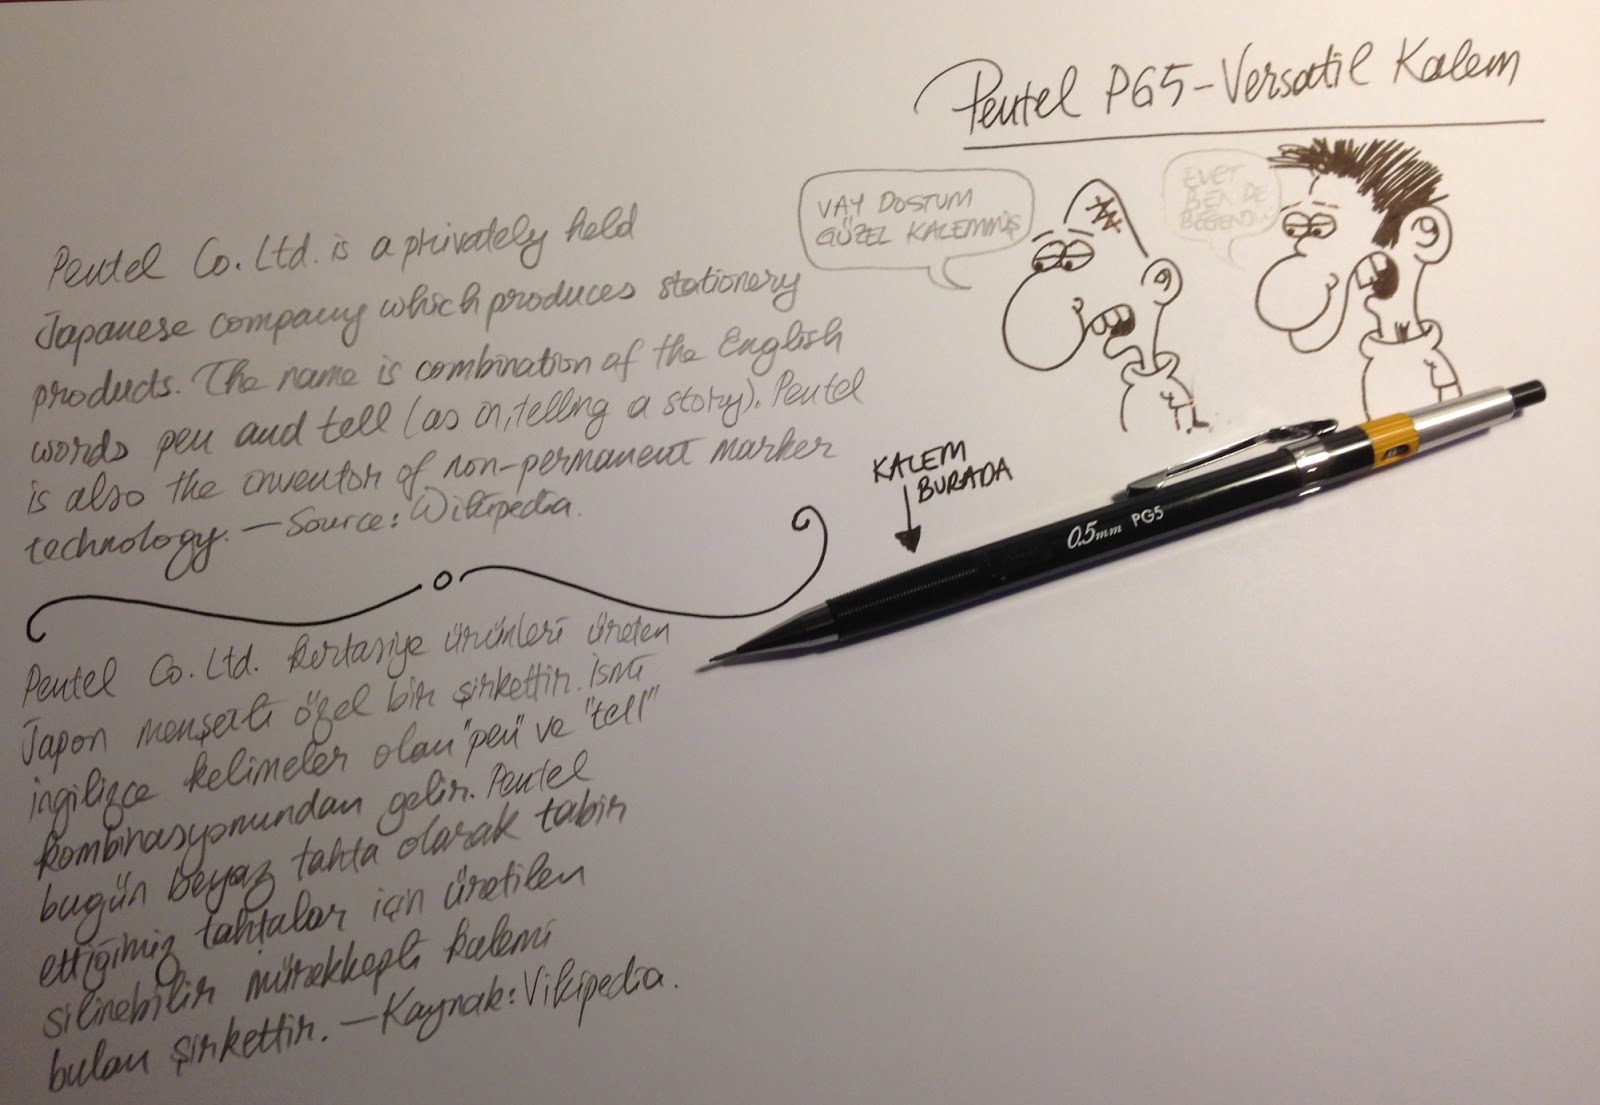 Pentel PG5-Versatil Kalem
VAY DOSTUM
GÜZEL KALEMMİŞ
EVET
BEN DE
BEĞENDİM
Pentel Co. Ltd. is a privately held
Japanese company which produces stationery
products. The name is combination of the English
words pen and tell (as in, telling a story). Pentel
is also the inventor of non-permanent marker
technology. — Source: Wikipedia.
KALEM
BURADA
0.5mm PG5
Pentel Co. Ltd. kırtasiye ürünleri üreten
Japon menşeili özel bir şirkettir. İsmi
ingilizce kelimeler olan "pen" ve "tell"
kombinasyonundan gelir. Pentel
bugün beyaz tahta olarak tabir
ettiğimiz tahtalar için üretilen
silinebilir mürekkepli kalemi
bulan şirkettir. — Kaynak: Vikipedia.